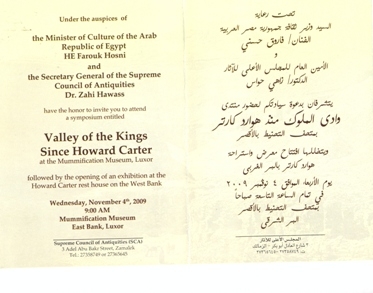 Under the auspices of
the Minister of Culture of the Arab
Republic of Egypt
HE Farouk Hosni
and
the Secretary General of the Supreme
Council of Antiquities
Dr. Zahi Hawass
have the honor to invite you to attend
a symposium entitled
Valley of the Kings
Since Howard Carter
at the Mummification Museum, Luxor
followed by the opening of an exhibition at the
Howard Carter rest house on the West Bank
Wednesday, November 4th, 2009
9:00 AM
Mummification Museum
East Bank, Luxor
Supreme Council of Antiquities (SCA)
3 Adel Abu Bakr Street, Zamalek
تحت رعاية
السيد وزير ثقافة جمهورية مصر العربية
الفنان/ فاروق حسني
و
الأمين العام للمجلس الأعلى للآثار
الدكتور/ زاهي حواس
يتشرفان بدعوة سيادتكم لحضور منتدى
وادى الملوك منذ هوارد كارتر
بمتحف التحنيط بالأقصر
ويتخللها افتتاح معرض واستراحة
هوارد كارتر بالبر الغربي
يوم الأربعاء الموافق ٤ نوفمبر ٢٠٠٩
فى تمام الساعة التاسعة صباحاً
بمتحف التحنيط بالأقصر
البر الشرقي
المجلس الأعلى للآثار
٣ شارع العادل أبو بكر - الزمالك